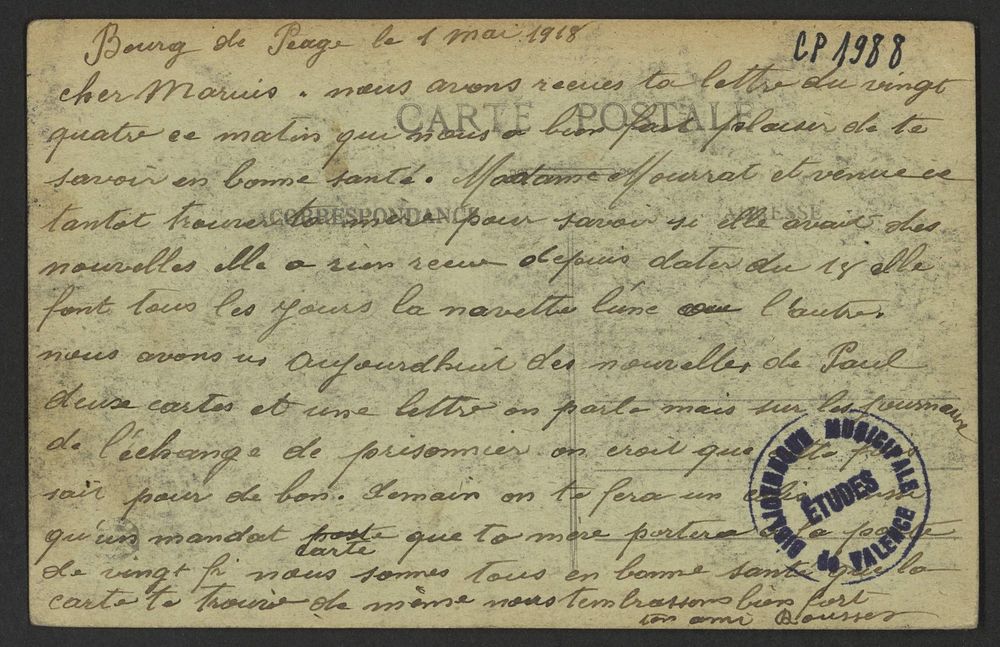 Bourg de Peage le 1 mai 1918
CP 1988
cher Marius. nous avons recues ta lettre du vingt
CARTE POSTALE
quatre ce matin qui nous a bien fait plaisir de te
savoir en bonne santé. Madame Mourrat et venue ce
CORRESPONDANCE
ADRESSE
tantot trouver ta mère pour savoir si elle avait des
nouvelles elle a rien recue depuis dater du 18 elle
font tous les jours la navette l'une l'autre.
nous avons us aujourdhuit des nouvelles de Paul
deux cartes et une lettre on parle mais sur les journeaux
de l'échange de prisonnier on croit que
sait pour de bon. demain on te fera un colis
qu'un mandat carte que ta mère portera a la poste
de vingt fr nous sonnes tous en bonne santé que la
carte te trouve de même nous t'embrassons bien fort
ton ami Rousset
BIBLIOTHEQUE MUNICIPALE
ÉTUDES
de VALENCE